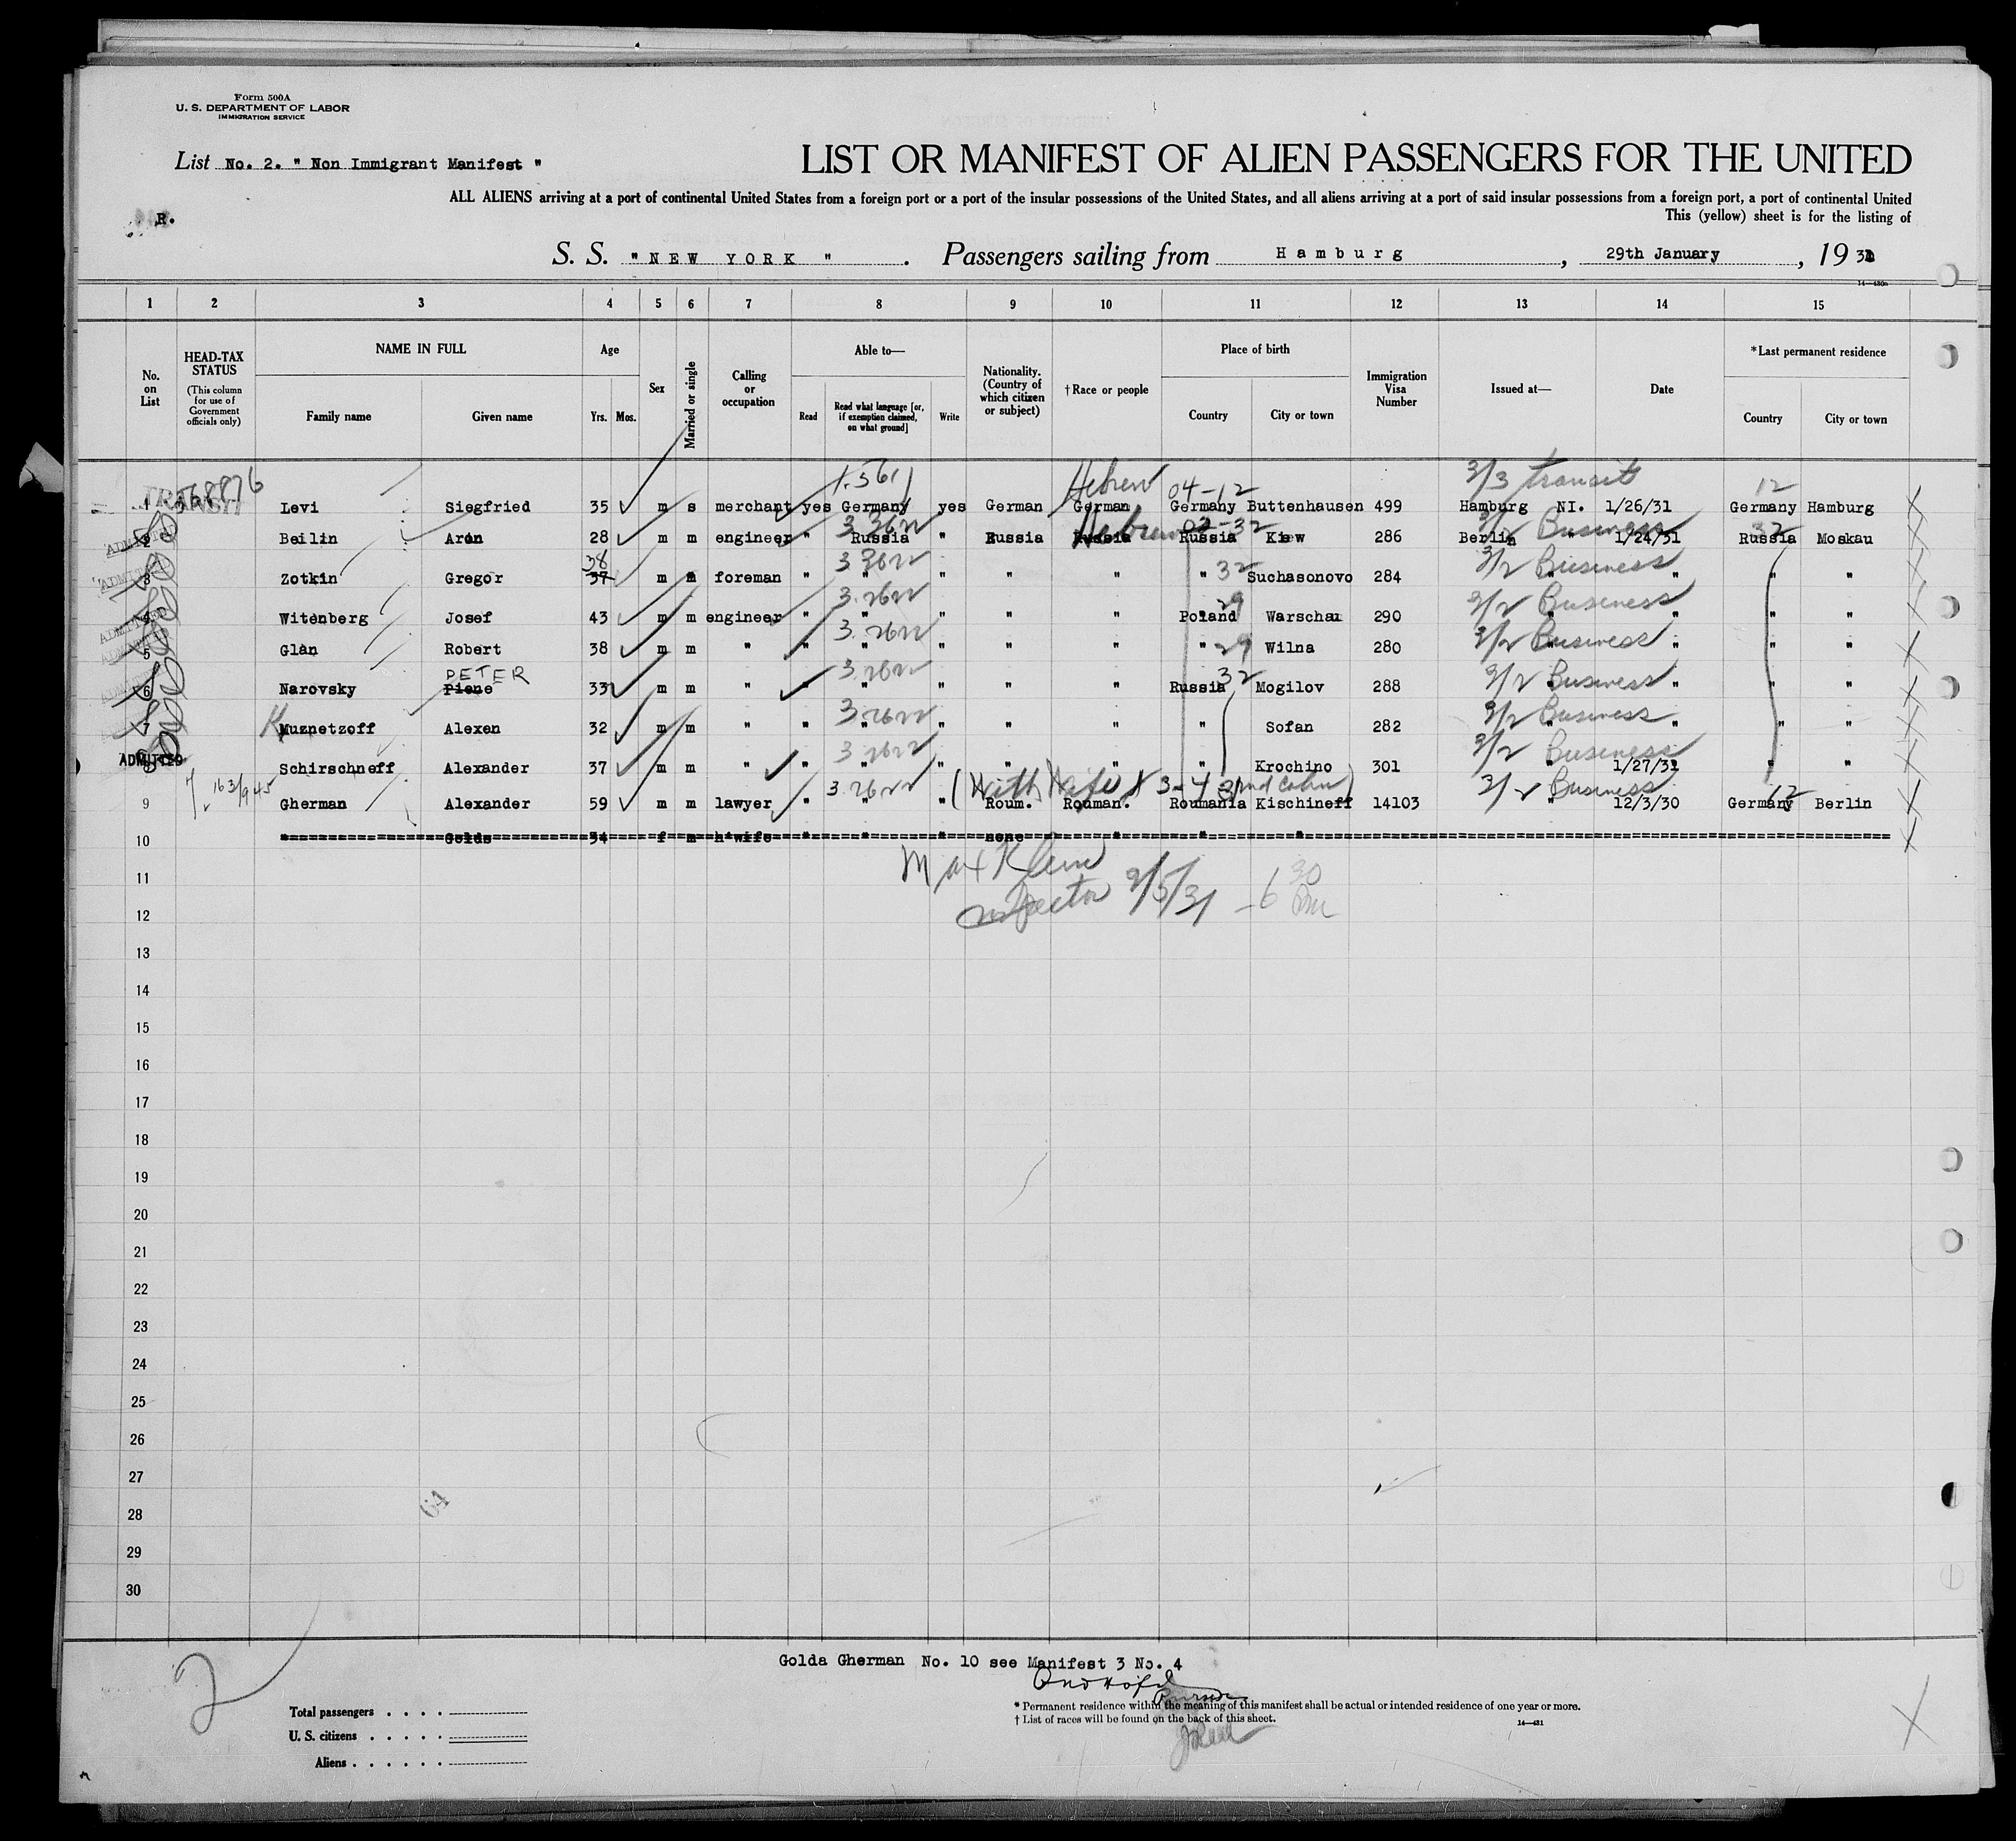 Form 500A
U. S. DEPARTMENT OF LABOR
IMMIGRATION SERVICE
List No. 2. " Non Immigrant Manifest "
LIST OR MANIFEST OF ALIEN PASSENGERS FOR THE UNITED
ALL ALIENS arriving at a port of continental United States from a foreign port or a port of the insular possessions of the United States, and all aliens arriving at a port of said insular possessions from a foreign port, a port of continental United
R.
This (yellow) sheet is for the listing of
S. S. " NEW YORK " . Passengers sailing from Hamburg , 29th January , 19 31
14—430a
1 2 3 4 5 6 7 8 9 10 11 12 13 14 15
No. on List
HEAD-TAX STATUS (This column for use of Government officials only)
NAME IN FULL Family name Given name
Age Yrs. Mos.
Sex
Married or single
Calling or occupation
Able to— Read Read what language [or, if exemption claimed, on what ground] Write
Nationality. (Country of which citizen or subject)
† Race or people
Place of birth Country City or town
Immigration Visa Number
Issued at—
Date
*Last permanent residence Country City or town
1.561 Hebrew 04-12 3/3 transit 12
1 Levi Siegfried 35 m s merchant yes Germany yes German German Germany Buttenhausen 499 Hamburg NI. 1/26/31 Germany Hamburg
3.26 Hebrew 32 3/2 Business 32
2 Beilin Aron 28 m m engineer " Russia " Russia Russia Russia Kiew 286 Berlin " 1/24/31 Russia Moskau
38 3.26 32 3/2 Business
3 Zotkin Gregor 37 m m foreman " " " " " " Suchasonovo 284 " " " "
3.26 29 3/2 Business
4 Witenberg Josef 43 m m engineer " " " " " Poland Warschau 290 " " " "
3.26 29 3/2 Business
5 Glan Robert 38 m m " " " " " " " Wilna 280 " " " "
PETER 3.26 32 3/2 Business
6 Narovsky Piene 33 m m " " " " " " Russia Mogilov 288 " " " "
K 3.26 3/2 Business
7 Muznetzoff Alexen 32 m m " " " " " " " Sofan 282 " " " "
ADMITTED 3.26 3/2 Business
8 Schirschneff Alexander 37 m m " " " " " " " Krochino 301 " 1/27/31 " "
163/945 3.26 (With Wife 3-4 2nd cabin) 3/2 Business 12
9 Gherman Alexander 59 m m lawyer " " " Roum. Rouman. Roumania Kischineff 14103 " 12/3/30 Germany Berlin
10 " Golda 34 f m h'wife " " " none " " "
11 Max Klein
12 Inspector 2/5/31 - 6 30 Pm
13
14
15
16
17
18
19
20
21
22
23
24
25
26
27
28
29
30
64
2
Golda Gherman No. 10 see Manifest 3 No. 4
* Permanent residence within the meaning of this manifest shall be actual or intended residence of one year or more.
† List of races will be found on the back of this sheet.
14—431
Total passengers . . . .
U. S. citizens . . . . .
Aliens . . . . . .